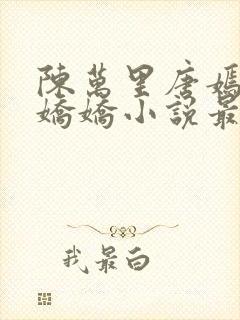 陳萬里唐嫣
嬌嬌小說最
我最白